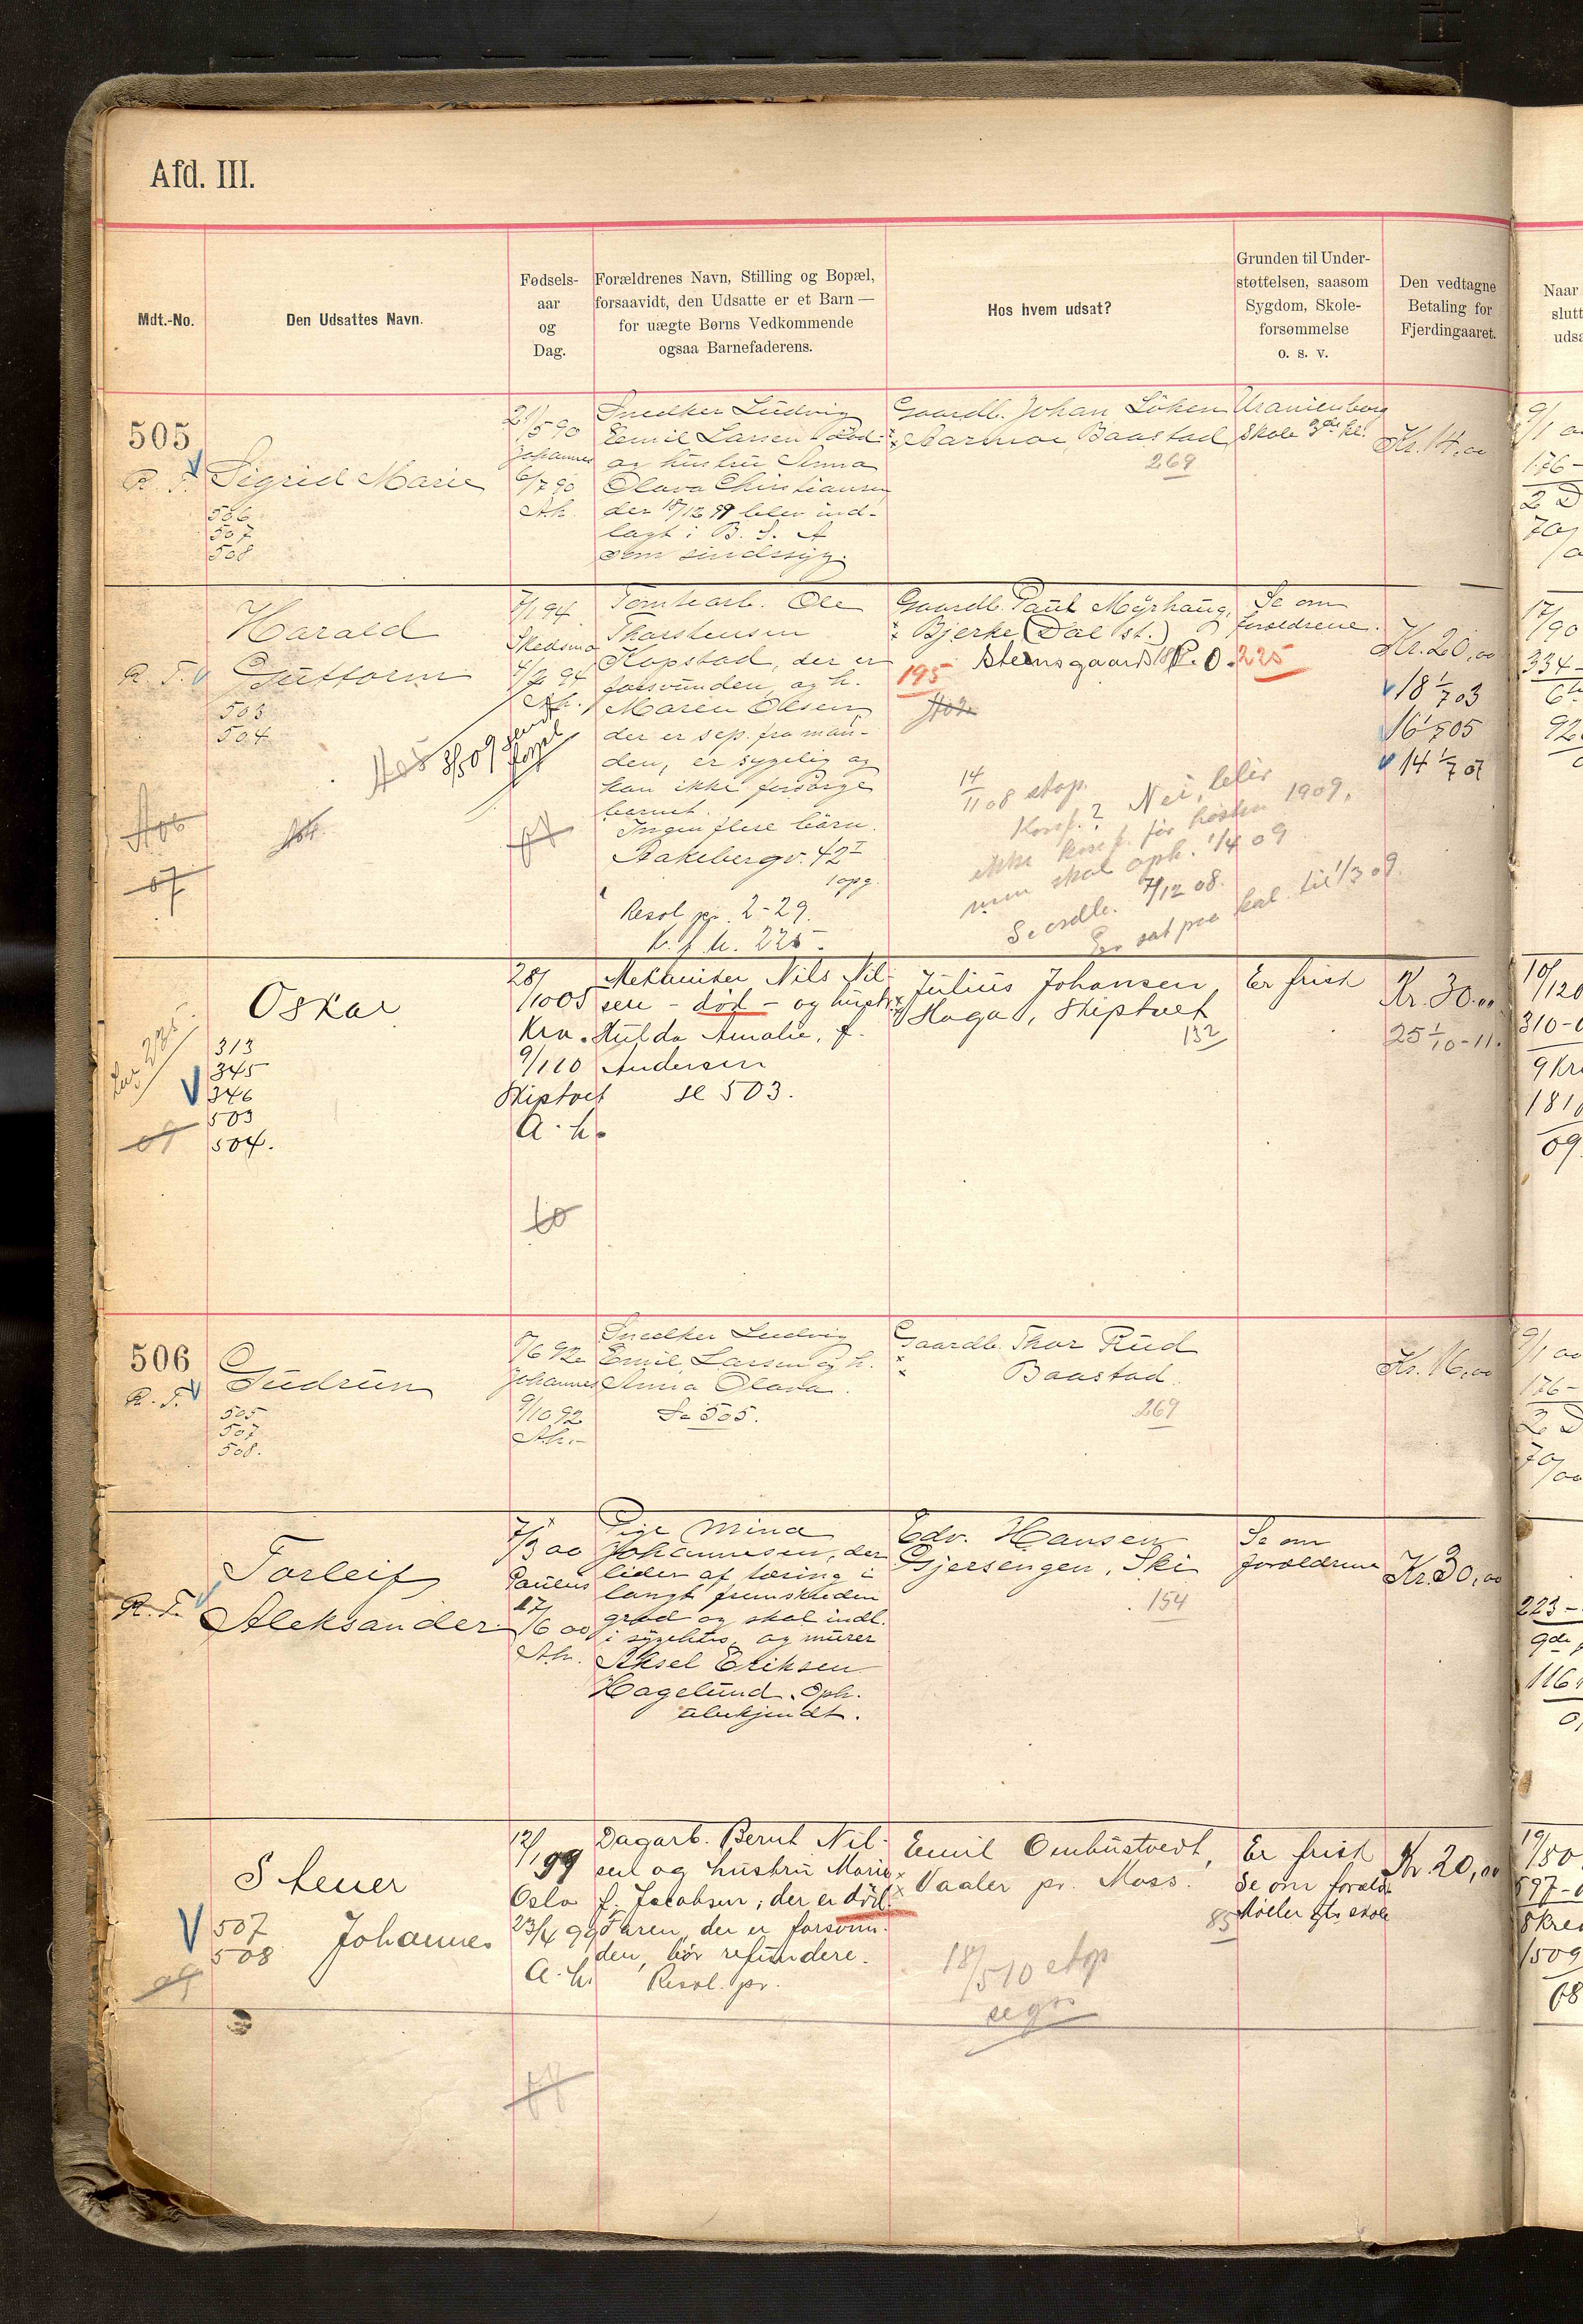 Afd. III.
Mdt.-No.
Den Udsattes Navn.
Fødsels-
aar
og
Dag.
Forældrenes Navn, Stilling og Bopæl,
forsaavidt, den Udsatte er et Barn —
for uægte Børns Vedkommende
ogsaa Barnefaderens.
Hos hvem udsat?
Grunden til Under-
støttelsen, saasom
Sygdom, Skole-
forsømmelse
o. s. v.
Den vedtagne
Betaling for
Fjerdingaaret.
Naar
slutt
udsa
505
R. T.
Sigrid Marie
506
507
508
21/5 90
Johannes
6/7 90
A.h.
Snedker Ludvig
Eemil Larsen - död -
og hustru Anna
Olava Christiansen
der 18/12 99 blev ind-
lagt i B. S. A
som sindssyg.
Gaardb. Johan Löken
Aarmoe, Baastad
269
Uranienborg
Skole 3die kl.
Kr. 14,00
R. T.
Harald
Guttorm
503
504
7/1 94
Skedsmo
4/4 94
A.h.
Tomtearb. Ole
Thorstensen
Kopstad, der er
forsvunden, og h.
Maren Olsen,
der er sep. fra man-
den, er sygelig og
kan ikke forsörge
barnet.
Ingen flere börn.
Aakebergv. 42 I
1 opg.
Resol. pr. 2-29.
K. f. h. 225
Gaardb. Paul Myrhaug,
Bjerke (Dal st.)
Stensgaard P. O. 225
195
Se om
forældrene.
Kr. 20,00
18 1/7 03
16 1/7 05
14 1/7 07
3/5 09
07
14/11 08 stop.
Konf.? Nei, blir
ikke konf. før høsten 1909,
men skal oph. 1/4 09
Se ordb. 7/12 08.
Er sat paa kal. til 1/3 09.
Oskar
313
345
346
503
504.
28/10 05
Kra.
9/1 10
Skiptvet
A. h.
Mekaniker Nils Nil-
sen - död - og hustr.
Hulda Amalie, f.
Andersen
se 503.
Julius Johansen,
Haga, Skiptvet
132
Er frisk
Kr. 30.00
25 1/10 - 11.
506
R. T.
Gudrun
505
507
508.
Johannes
9/10 92
A.h.
Snedker Ludvig
Emil Larsen og h.
Anna Olava.
Se 505.
Gaardb. Thor Rud
Baastad.
269
Kr. 16,00
R. T.
Torleif
Aleksander
7/3 00
Paulus
17/6 00
A.h.
Pige Mina
Johannesen, der
lider af tæring i
langt fremskreden
grad og skal indl.
i sygehus, og murer
Aksel Eriksen
Hagelund. Oph.
ubekjendt.
Edv. Hansen
Gjersengen, Ski
154
Se om
forældrene
Kr. 30,00
Stener
Johannes
507
508
12/1 99
Oslo
23/4 99
A. h.
Dagarb. Bernt Nil-
sen og hustru Marie
f. Jacobsen, der er död.
Faren, der er forsvun-
den, bör refundere.
Resol. pr.
Emil Ombustvedt,
Vaaler pr. Moss.
85
18/5 10 stop
Er frisk
Se om foræld.
Möller gts skole
Kr. 20,00